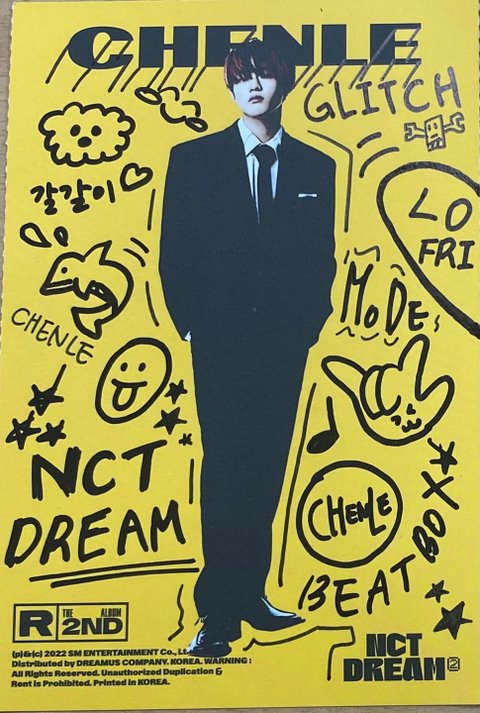 CHENLE
GLITCH
갈갈이
LO
FRI
MODE
CHENLE
NCT
DREAM
CHENLE
BEAT BOX
R THE 2ND ALBUM
(p)&(c) 2022 SM ENTERTAINMENT Co., Lt
Distributed by DREAMUS COMPANY. KOREA. WARNING :
All Rights Reserved. Unauthorized Duplication &
Rent is Prohibited. Printed in KOREA.
NCT
DREAM 2